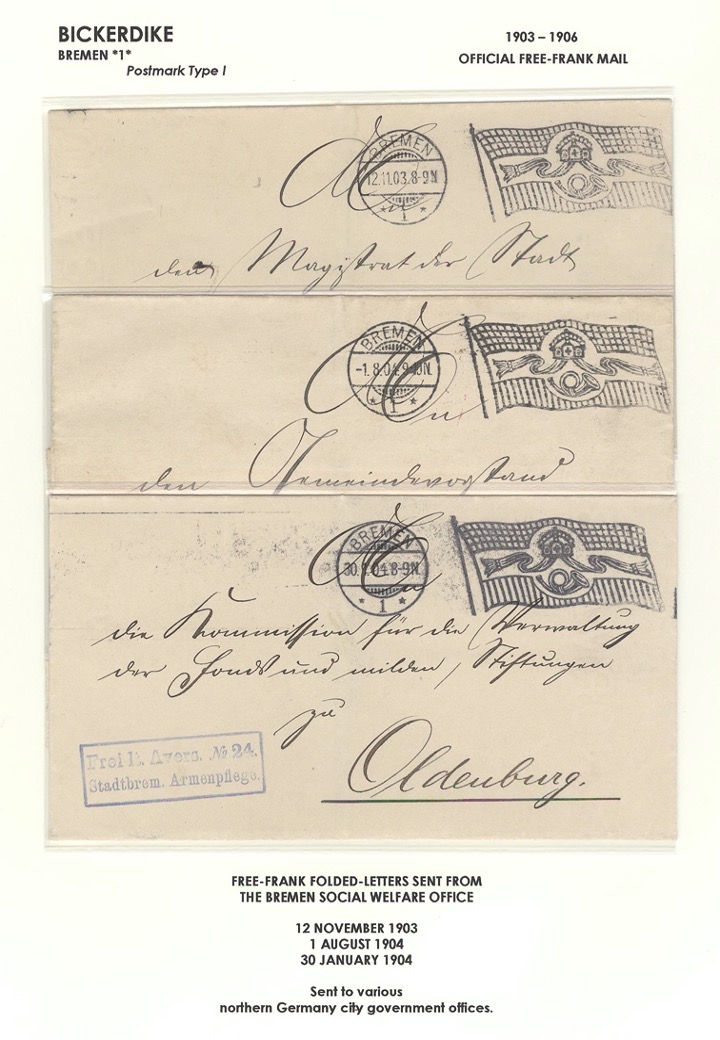 BICKERDIKE
BREMEN *1*
Postmark Type I
1903 – 1906
OFFICIAL FREE-FRANK MAIL
BREMEN
12.11.03.8-9N
* 1 *
An
den Magistrat der Stadt
BREMEN
-1.8.04.9-10N.
* 1 *
An
den Gemeindevorstand
BREMEN
30.1.04.8-9N
* 1 *
An
die Kommission für die Verwaltung
der Fonds und milden Stiftungen
zu
Oldenburg.
Frei lt. Avers. № 24.
Stadtbrem. Armenpflege.
FREE-FRANK FOLDED-LETTERS SENT FROM
THE BREMEN SOCIAL WELFARE OFFICE
12 NOVEMBER 1903
1 AUGUST 1904
30 JANUARY 1904
Sent to various
northern Germany city government offices.